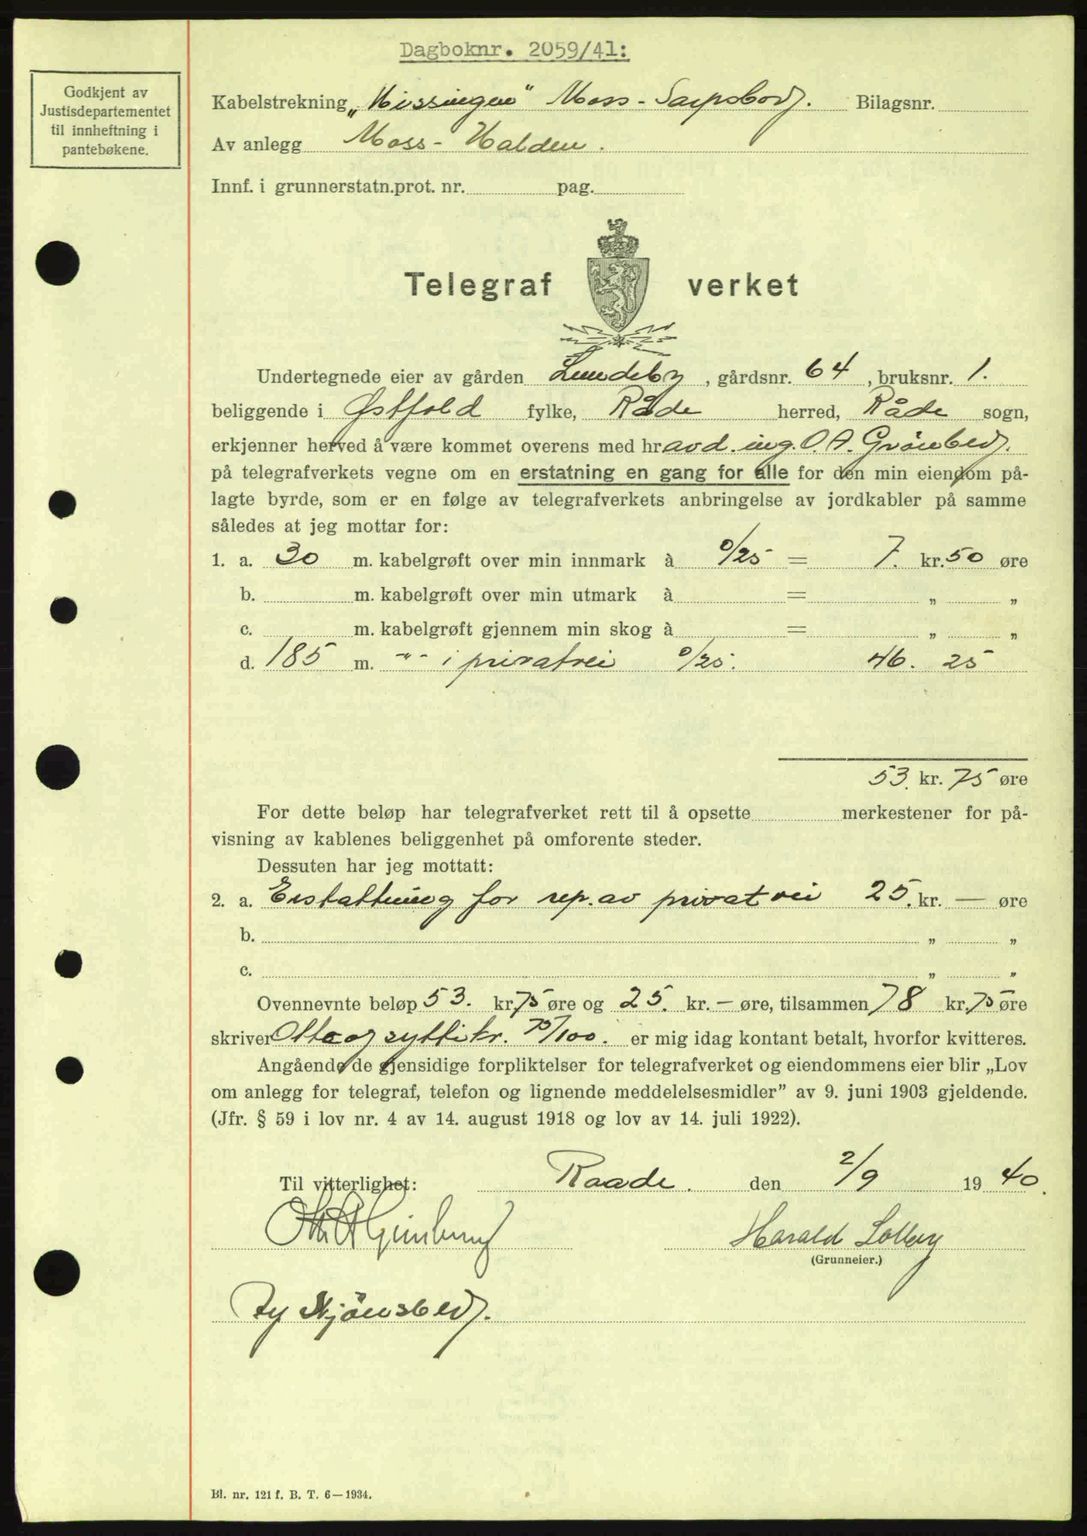 Dagboknr. 2059/41:
Godkjent av
Justisdepartementet
til innheftning i
pantebøkene.
Kabelstrekning „Hissingen" Moss - Sarpsborg. Bilagsnr.
Av anlegg Moss - Halden.
Innf. i grunnerstatn.prot. nr. pag.
Telegraf verket
Undertegnede eier av gården Lundeby, gårdsnr. 64, bruksnr. 1.
beliggende i Østfold fylke, Råde herred, Råde sogn,
erkjenner herved å være kommet overens med hr avd. ing. O. A.
på telegrafverkets vegne om en erstatning en gang for alle for den min eiendom på-
lagte byrde, som er en følge av telegrafverkets anbringelse av jordkabler på samme
således at jeg mottar for:
1. a. 30 m. kabelgrøft over min innmark à 0/25 = 7. kr. 50 øre
b. m. kabelgrøft over min utmark à = „ „
c. m. kabelgrøft gjennem min skog à = „ „
d. 185 m. -"- i privatvei 0/25. 46. 25
53. kr. 75 øre
For dette beløp har telegrafverket rett til å opsette merkestener for på-
visning av kablenes beliggenhet på omforente steder.
Dessuten har jeg mottatt:
2. a. Erstattning for rep. av privat vei 25. kr. — øre
b. „ „
c. „ „
Ovennevnte beløp 53. kr. 75 øre og 25. kr. — øre, tilsammen 78 kr. 75 øre
skriver Otte og sytti kr. 75/100. er mig idag kontant betalt, hvorfor kvitteres.
Angående de gjensidige forpliktelser for telegrafverket og eiendommens eier blir „Lov
om anlegg for telegraf, telefon og lignende meddelelsesmidler" av 9. juni 1903 gjeldende.
(Jfr. § 59 i lov nr. 4 av 14. august 1918 og lov av 14. juli 1922).
Til vitterlighet: Raade. den 2/9 1940.
Harald
(Grunneier.)
Bl. nr. 121 f. B. T. 6—1934.